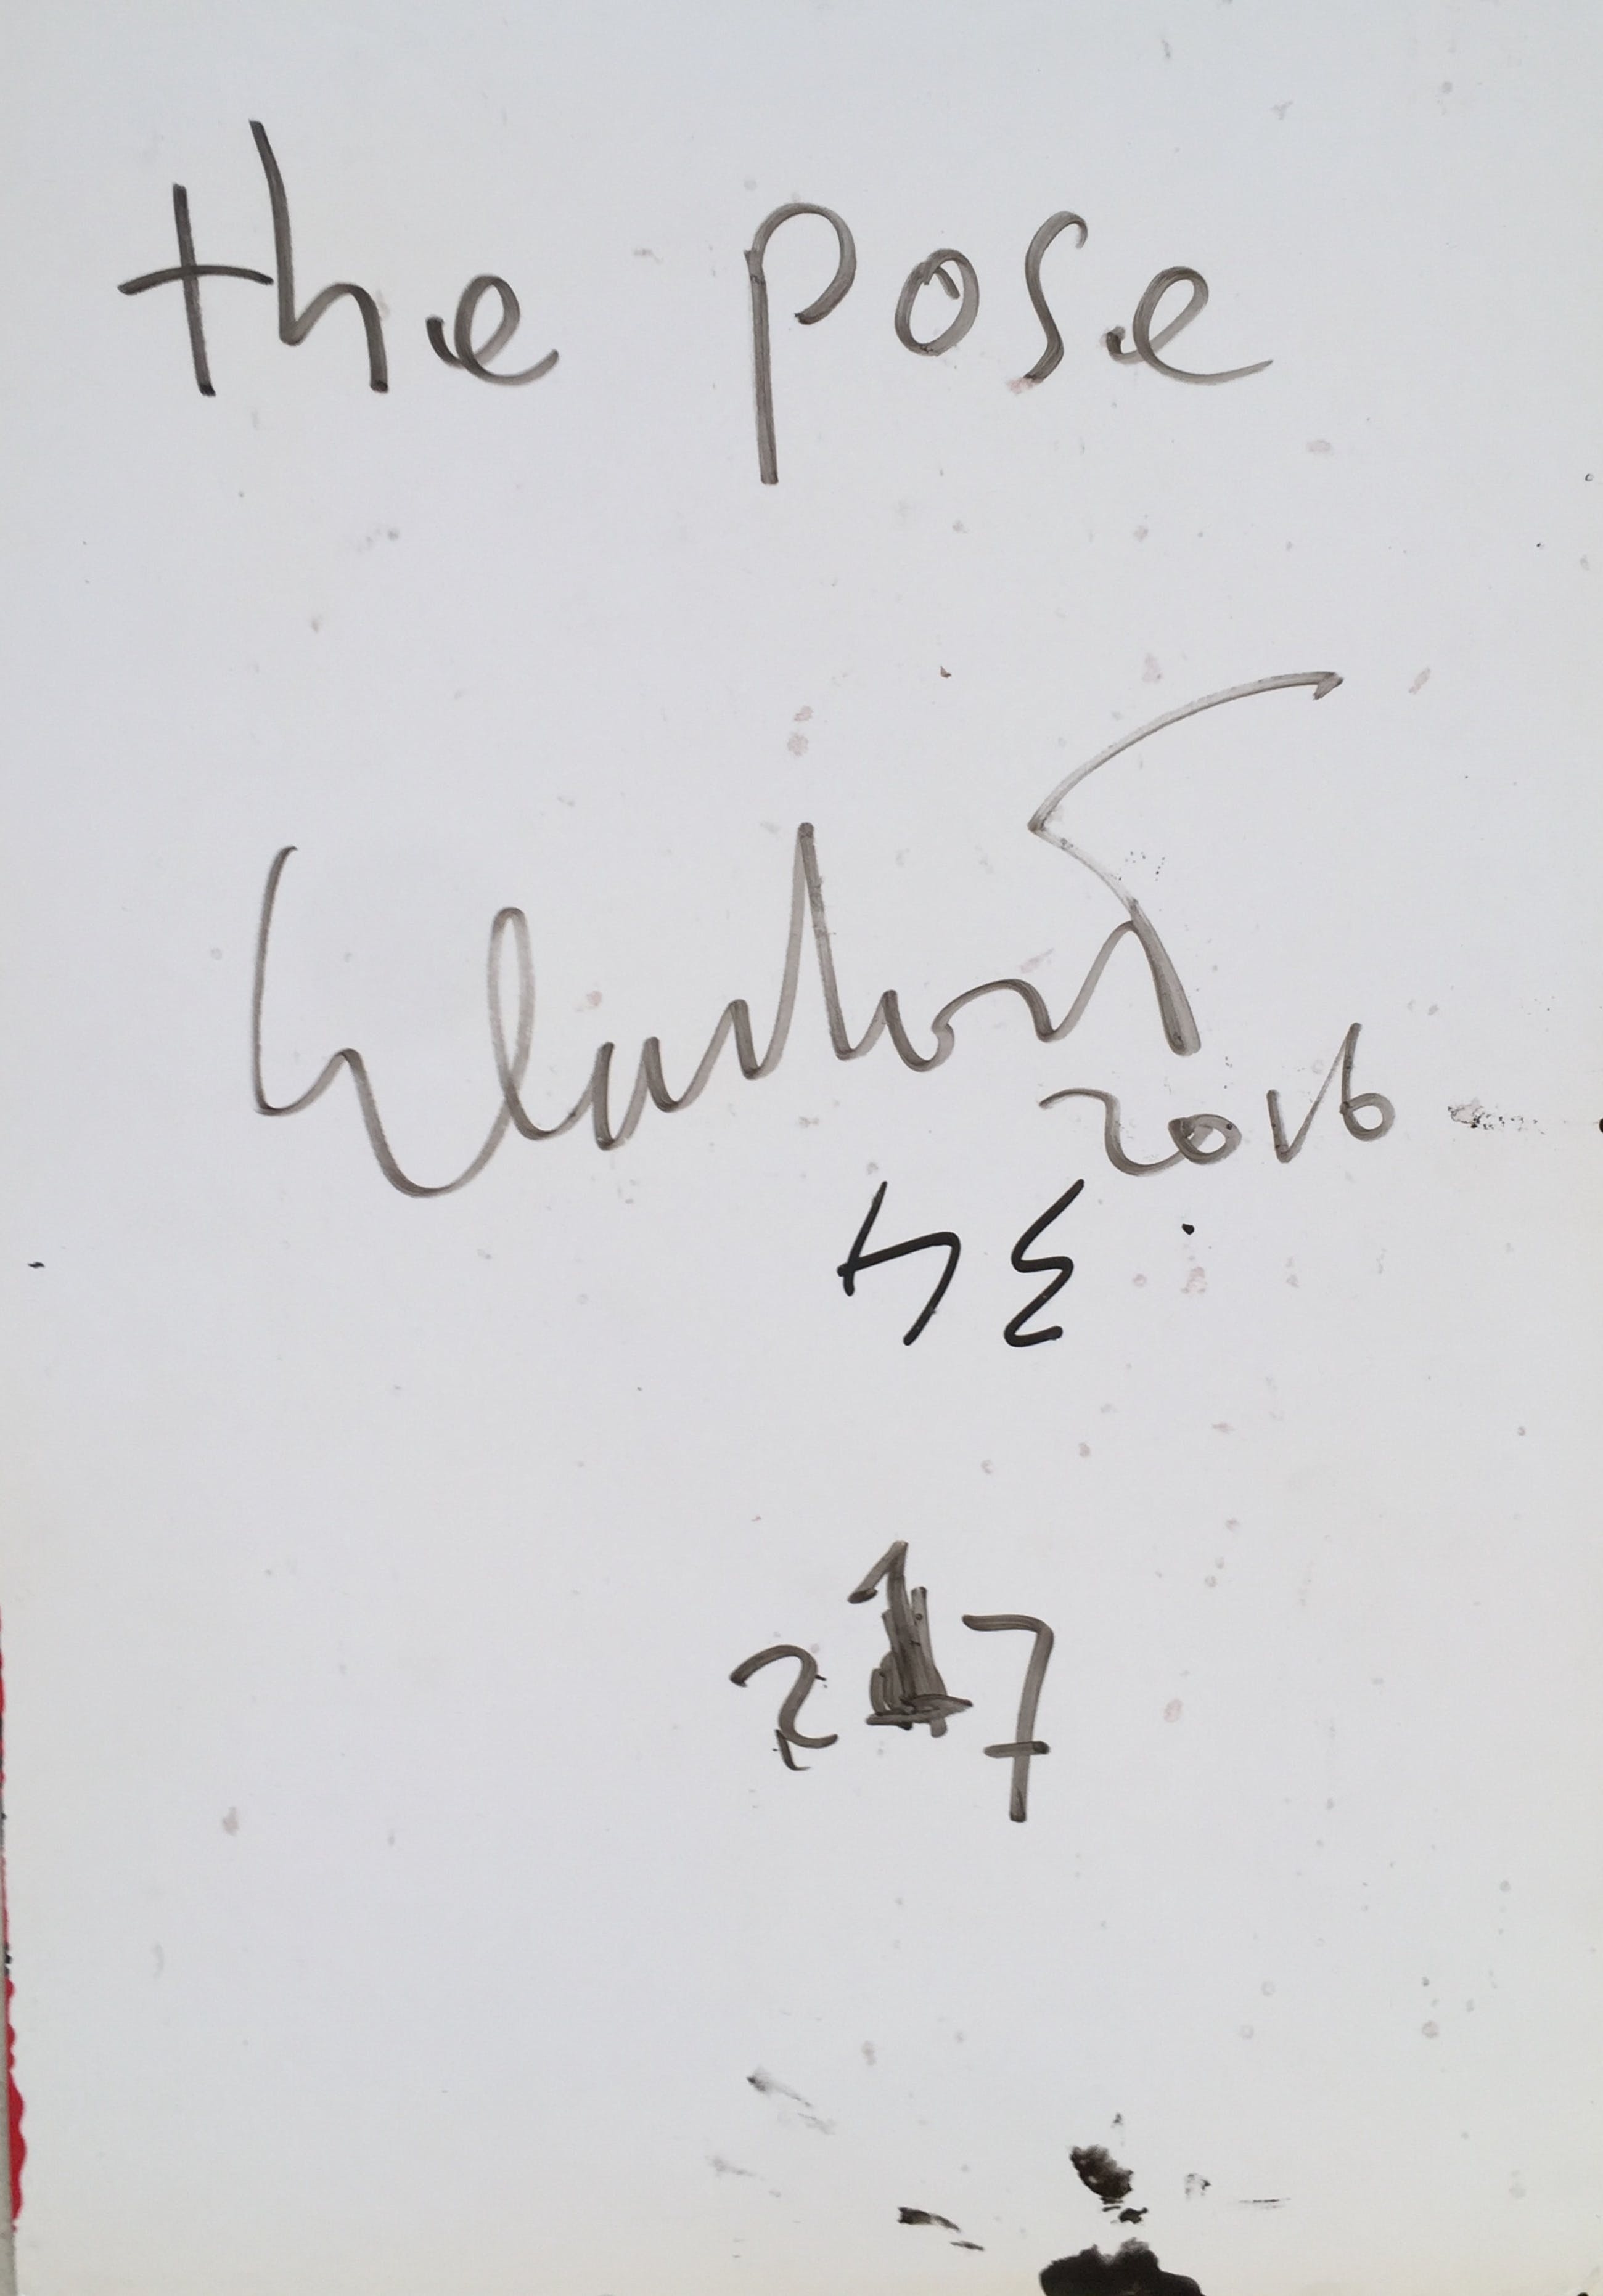 the pose
2016
34.
217